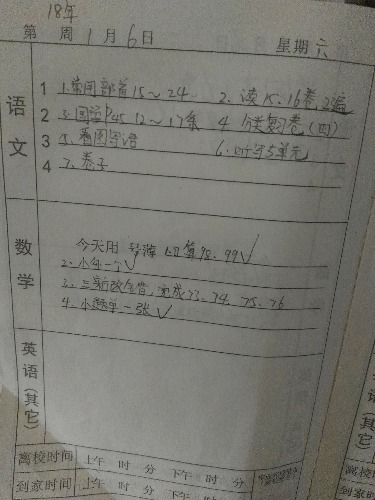 18年
第 周 1月6日 星期六
语文
1 1.常用部首15～24 2、读15、16卷2遍
2 3.国学P45 12～17条 4 分类复习卷(四)
3 5、看图写话 6.听写5单元
4 7、
数学
今天用 口算98、99√
2、小 一个√
3、三 完成73、74、75、76
4、小 一张√
英语(其它)
离校时间 上午 时 分 下午 时 分
到家时间 上午 时 分 下午 时 分
离校时间
到家时间
英语(其它)